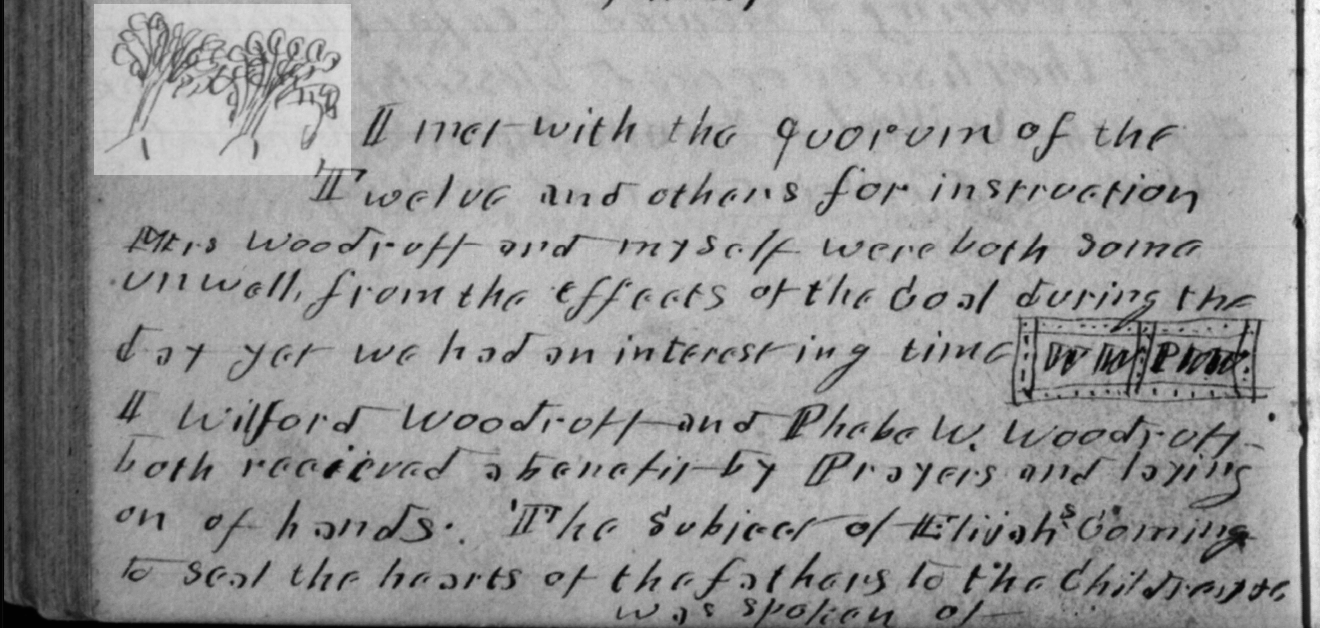 I met with the quorum of the
Twelve and others for instruction
Mrs Woodruff and myself were both some
unwell, from the effects of the Coal during the
day yet we had an interesting time WW PWW.
I Wilford Woodruff and Phebe W. Woodruff
both recieved a benefit by Prayers and laying
on of hands. The subject of Elijahs Coming
to seal the hearts of the fathers to the Children &c
was spoken of